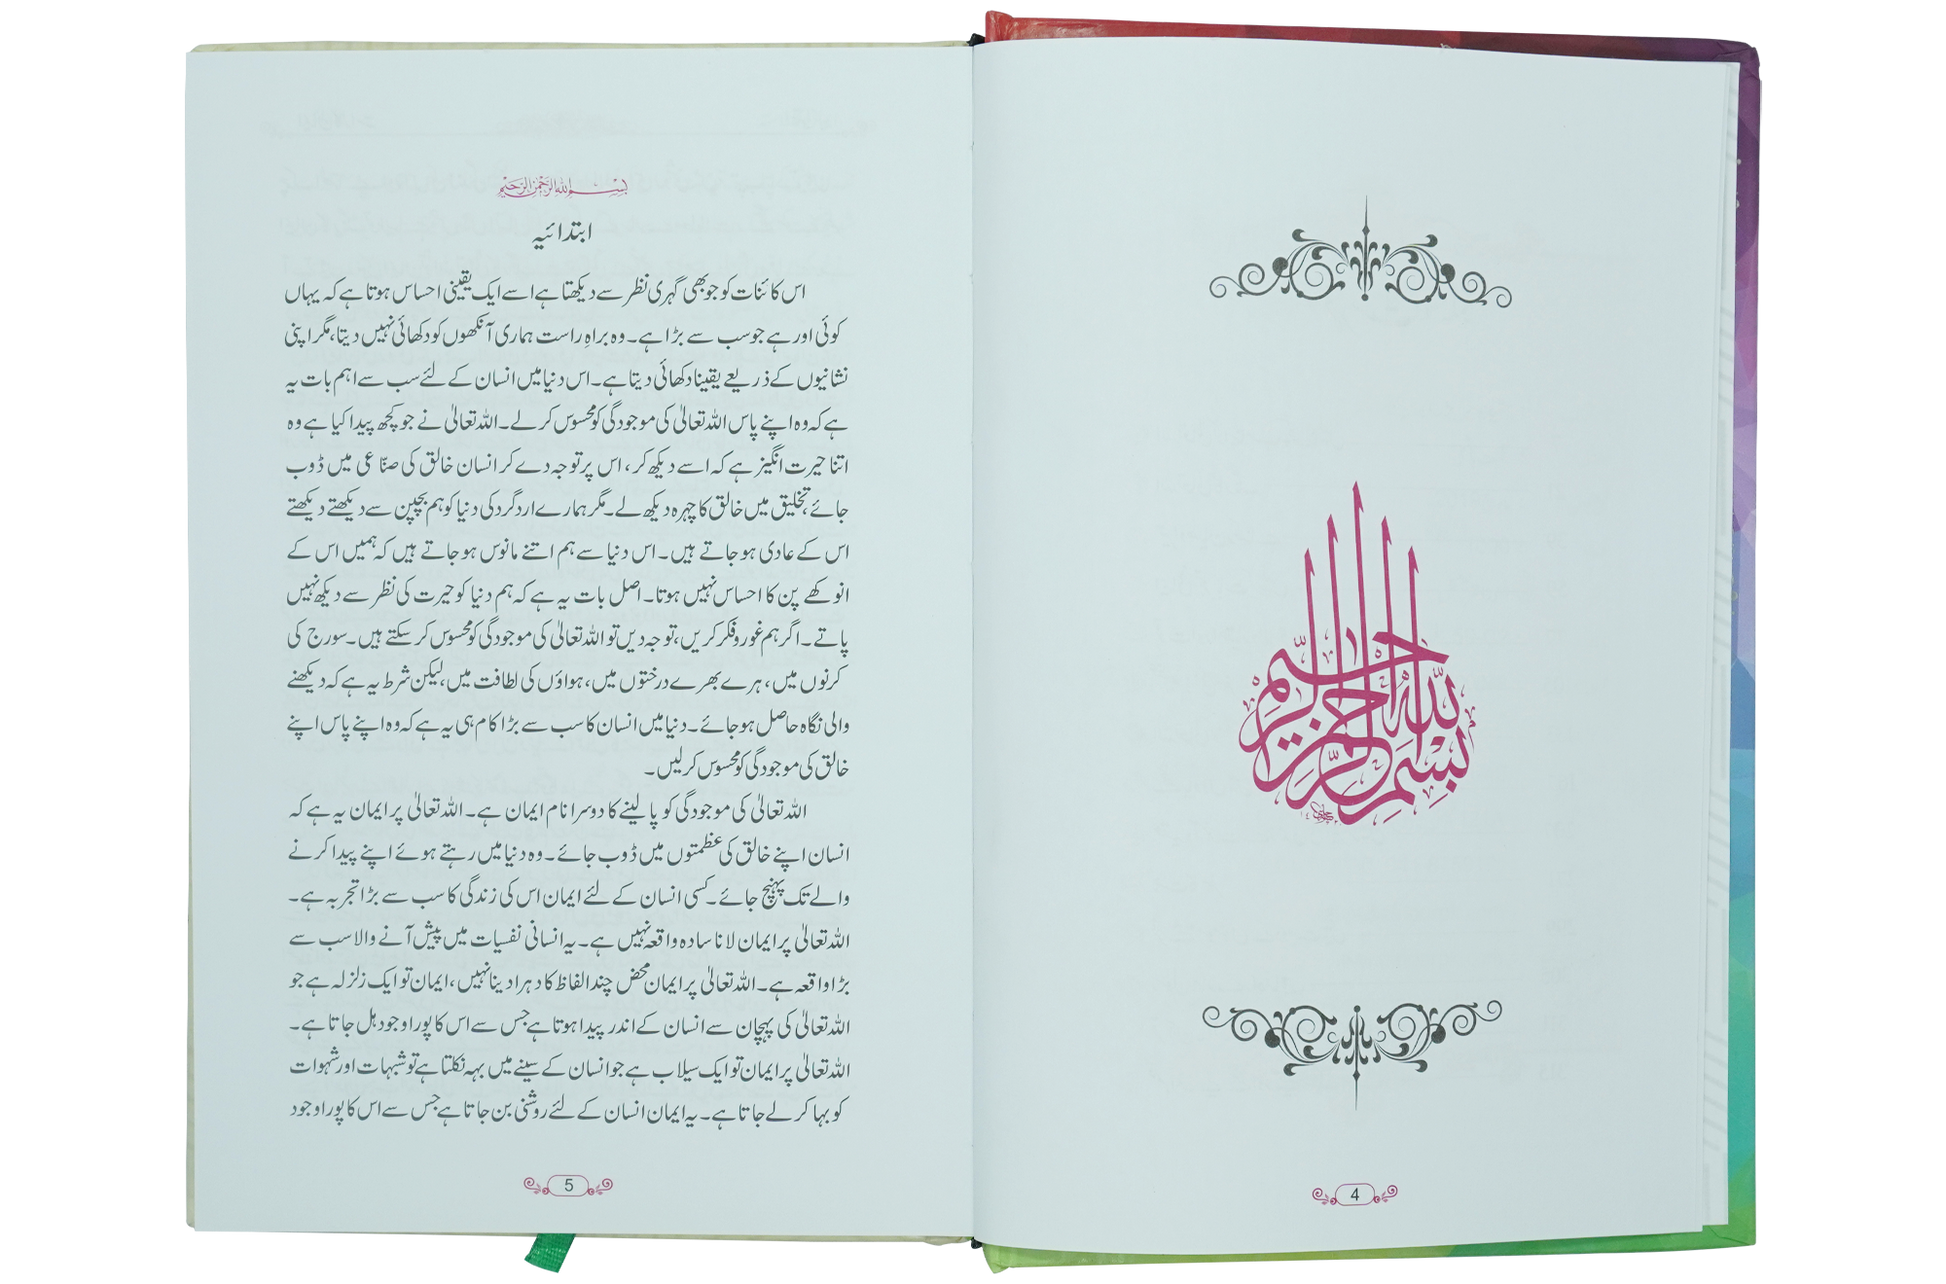 بسم الله الرحمن الرحيم
4
بسم الله الرحمن الرحيم
ابتدائیہ
اس کائنات کو جو بھی گہری نظر سے دیکھتا ہے اسے ایک یقینی احساس ہوتا ہے کہ یہاں
کوئی اور ہے جو سب سے بڑا ہے۔ وہ براہِ راست ہماری آنکھوں کو دکھائی نہیں دیتا، مگر اپنی
نشانیوں کے ذریعے یقینا دکھائی دیتا ہے۔ اس دنیا میں انسان کے لئے سب سے اہم بات یہ
ہے کہ وہ اپنے پاس اللہ تعالیٰ کی موجودگی کو محسوس کر لے۔ اللہ تعالیٰ نے جو کچھ پیدا کیا ہے وہ
اتنا حیرت انگیز ہے کہ اسے دیکھ کر، اس پر توجہ دے کر انسان خالق کی صنّاعی میں ڈوب
جائے، تخلیق میں خالق کا چہرہ دیکھ لے۔ مگر ہمارے ارد گرد کی دنیا کو ہم بچپن سے دیکھتے دیکھتے
اس کے عادی ہو جاتے ہیں۔ اس دنیا سے ہم اتنے مانوس ہو جاتے ہیں کہ ہمیں اس کے
انوکھے پن کا احساس نہیں ہوتا۔ اصل بات یہ ہے کہ ہم دنیا کو حیرت کی نظر سے دیکھ نہیں
پاتے۔ اگر ہم غور و فکر کریں، توجہ دیں تو اللہ تعالیٰ کی موجودگی کو محسوس کر سکتے ہیں۔ سورج کی
کرنوں میں، ہرے بھرے درختوں میں، ہواؤں کی لطافت میں، لیکن شرط یہ ہے کہ دیکھنے
والی نگاہ حاصل ہو جائے۔ دنیا میں انسان کا سب سے بڑا کام ہی یہ ہے کہ وہ اپنے پاس اپنے
خالق کی موجودگی کو محسوس کر لیں۔
اللہ تعالیٰ کی موجودگی کو پا لینے کا دوسرا نام ایمان ہے۔ اللہ تعالیٰ پر ایمان یہ ہے کہ
انسان اپنے خالق کی عظمتوں میں ڈوب جائے۔ وہ دنیا میں رہتے ہوئے اپنے پیدا کرنے
والے تک پہنچ جائے۔ کسی انسان کے لئے ایمان اس کی زندگی کا سب سے بڑا تجربہ ہے۔
اللہ تعالیٰ پر ایمان لانا سادہ واقعہ نہیں ہے۔ یہ انسانی نفسیات میں پیش آنے والا سب سے
بڑا واقعہ ہے۔ اللہ تعالیٰ پر ایمان محض چند الفاظ کا دہرا دینا نہیں، ایمان تو ایک زلزلہ ہے جو
اللہ تعالیٰ کی پہچان سے انسان کے اندر پیدا ہوتا ہے جس سے اس کا پورا وجود ہل جاتا ہے۔
اللہ تعالیٰ پر ایمان تو ایک سیلاب ہے جو انسان کے سینے میں بہہ نکلتا ہے تو شبہات اور شہوات
کو بہا کر لے جاتا ہے۔ یہ ایمان انسان کے لئے روشنی بن جاتا ہے جس سے اس کا پورا وجود
5